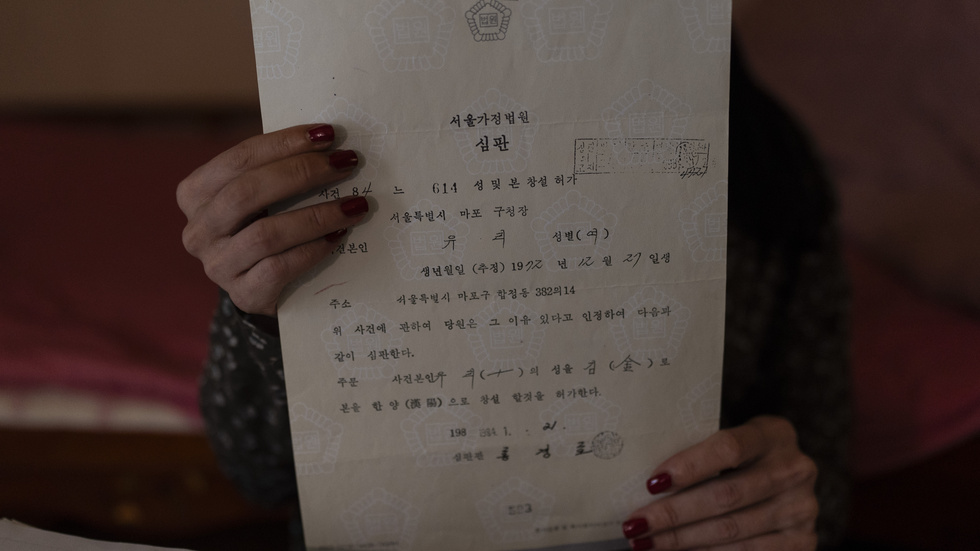 법원
서울가정법원
심판
사건 84 느 614 성 및 본 창설 허가
서울특별시 마포 구청장
건본인 유 성별(여)
생년월일 (추정) 1972 년 12 월 27 일생
주소 서울특별시 마포구 합정동 382의14
위 사건에 관하여 당원은 그 이유 있다고 인정하여 다음과
같이 심판한다.
주문 사건본인 의 성을 김 (金) 로
본을 한양 (漢陽) 으로 창설 할것을 허가한다.
198 1. 21.
심판관 홍